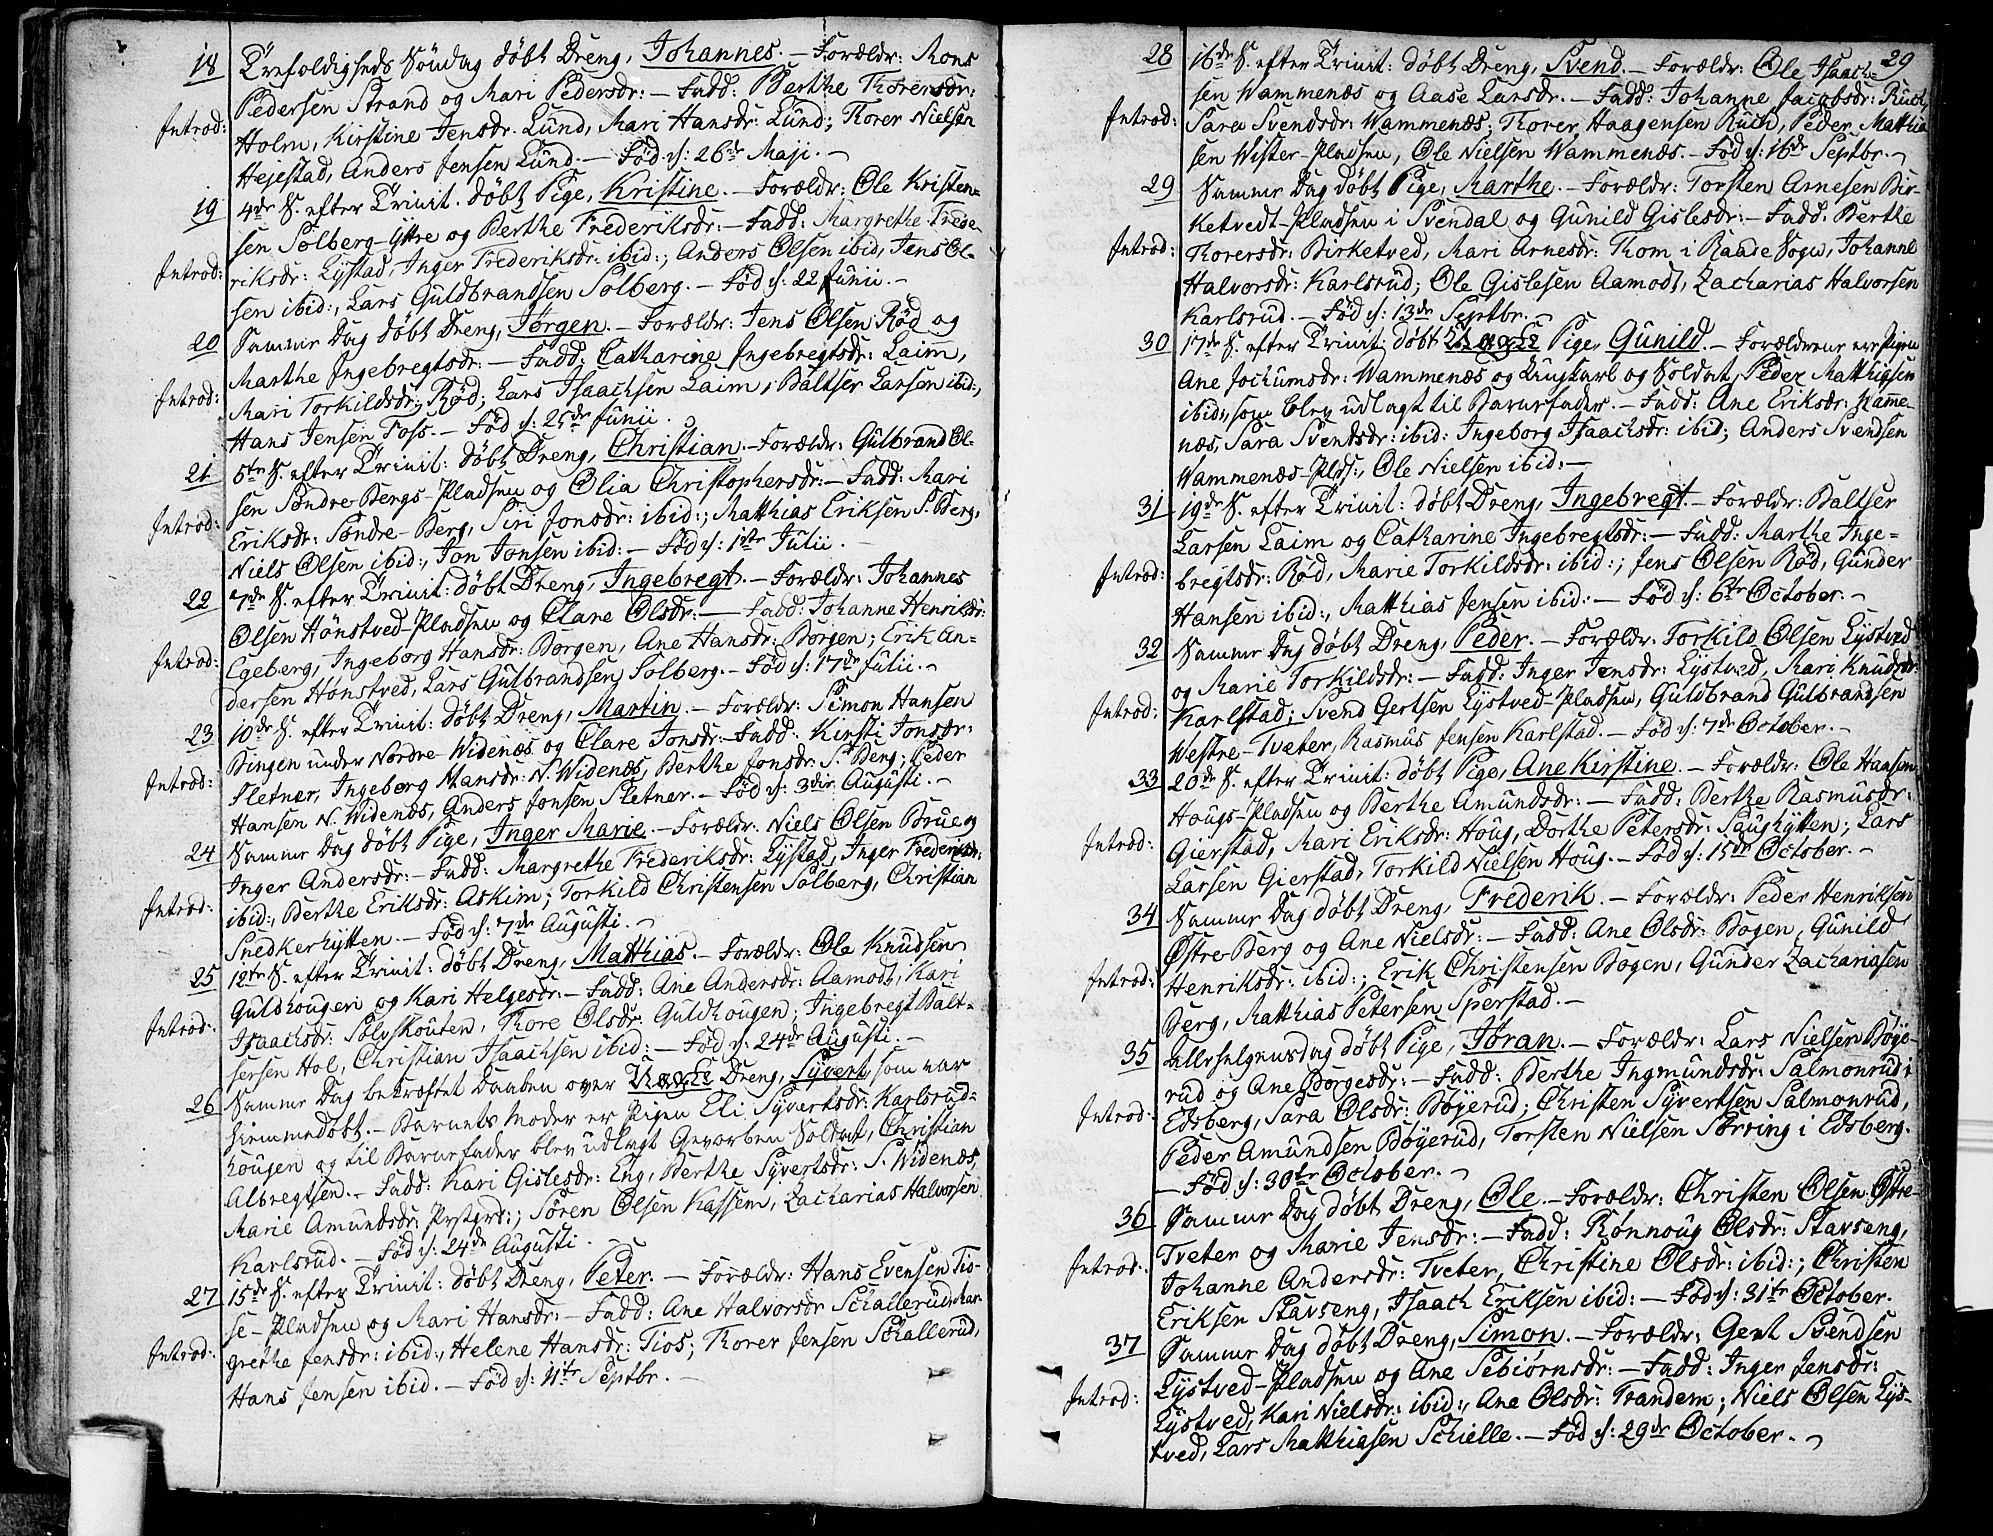 18 Trefoldigheds Söndag döbt Dreng, Johannes. – Forældr: Mons
Pedersen Strand og Mari Pedersdr: – Fadd: Berthe Thorersdr:
Introd: Holm, Kirstine Jensdr. Lund, Mari Hansdr: Lund; Thorer Nielsen
Hejestad, Anders Jensen Lund. – Föd d: 26de Maji. –
19 4de S. efter Trinit. döbt Pige, Kristine. – Forældr: Ole Kristen-
sen Solberg-Yttre og Berthe Frederiksdr: – Fadd: Margrethe Frede-
Introd: riksdr: Lystad, Inger Frederiksdr: ibid:, Anders Olsen ibid, Jens Ol-
sen ibid:, Lars Guldbrandsen Solberg. – Föd d: 22 Junii. –
20 Samme Dag döbt Dreng, Jørgen. – Forældr: Jens Olsen Rød og
Marthe Ingebregtsdr: – Fadd: Catharine Ingebregtsdr: Laim,
Introd: Mari Torkildsdr: Rød; Lars Isaachsen Laim, Baltser Larsen ibid:,
Hans Jensen Foss. – Föd d: 25de Junii.
21 5te S. efter Trinit: döbt Dreng, Christian. – Forældr: Gulbrand Ol-
sen Søndre Bergs-Pladsen og Olia Christophersdr: – Fadd: Mari
Introd: Eriksdr: Søndre-Berg, Siri Jonsdr: ibid:; Matthias Eriksen S. Berg,
Niels Olsen ibid:, Jon Jonsen ibid: – Föd d: 1ste Julii.
22 7de S. efter Trinit: döbt Dreng, Ingebregt. – Forældr: Johannes
Olsen Hönstved-Pladsen og Clare Olsdr: – Fadd: Johanne Henriksdr:
Introd: Egeberg, Ingeborg Hansdr: Borgen, Ane Hansdr: Borgen; Erik An-
dersen Hönstved, Lars Gulbrandsen Solberg. – Föd d: 17de Julii. –
23 10de S. efter Trinit: döbt Dreng, Martin. – Forældr: Simon Hansen
Bingen under Nordre-Widenæs og Clare Jonsdr: – Fadd: Kirsti Jonsdr:
Introd: Sletner, Ingeborg Hansdr: N. Widenæs, Berthe Jonsdr: S. Berg; Peder
Hansen N. Widenæs, Anders Jonsen Sletner. – Föd d: 3die Augusti. –
24 Samme Dag döbt Pige, Inger Marie. – Forældr: Niels Olsen Brueg
Inger Andersdr: – Fadd: Margrethe Frederiksdr: Lystad, Inger Frederiksdr:
Introd: ibid:, Berthe Eriksdr: Askim; Torkild Christensen Solberg, Christian
Snedkerhytten. – Föd d: 7de Augusti. –
25 12te S. efter Trinit: döbt Dreng, Matthias. – Forældr: Ole Knudsen
Guldhougen og Kari Helgesdr: – Fadd: Ane Andersdr: Aamodt, Kari
Introd: Isaachsdr: Solvskouten, Thore Olsdr: Guldhougen; Ingebregt Balt-
sersen Hol, Christian Isaachsen ibid: – Föd d: 24de Augusti. –
26 Samme Dag bekræftet Daaben over Uægte Dreng, Syvert, som var
hjemmedöbt. – Barnets Moder er Pigen Eli Syvertsdr: Karlsrud-
hougen og til Barnefader blev udlagt Gevorben Soldat, Christian
Albregtsen. – Fadd: Kari Gislesdr: Eng, Berthe Syvertsdr: S. Widenæs,
Marie Amundsdr: Prstgrd:; Sören Olsen Kassem, Zacharias Halvorsen
Karlsrud. – Föd d: 24de Augusti.
27 15de S. efter Trinit: döbt Dreng, Peter. – Forældr: Hans Evensen Tio-
se-Pladsen og Mari Hansdr: – Fadd: Ane Halvorsdr Schallerud, Mar-
Introd: grethe Jensdr: ibid:, Helene Hansdr: Tios; Thorer Jensen Schallerud,
Hans Jensen ibid. – Föd d: 11te Septbr. –
29
28 16de S. efter Trinit: döbt Dreng, Svend. – Forældr: Ole Isaach-
sen Wammenæs og Aase Larsdr. – Fadd: Johanne Jacobsdr: Ruch,
Introd: Sara Svendsdr: Wammenæs; Thorer Haagensen Ruch, Peder Mathia
sen Wister-Pladsen, Ole Nielsen Wammenæs. – Föd d: 16de Septbr. –
29 Samme Dag döbt Pige, Marthe. – Forældr: Torsten Arnesen Bir-
ketvedt-Pladsen i Svendal og Gunild Gislesdr: – Fadd: Berthe
Introd: Thorersdr: Birketved, Mari Arnesdr: Thom i Raade Sogn, Johanne
Halvorsdr: Karlsrud; Ole Gislesen Aamodt, Zacharias Halvorsen
Karlsrud. – Föd d: 13de Septbr. –
30 17de S. efter Trinit: döbt Uægte Pige, Gunild. – Forældrene ere Pigen
Ane Jochumsdr: Wammenæs og Ungkarl og Soldat, Peder Matthiasen
ibid:, som blev udlagt til Barnefader. – Fadd: Ane Eriksdr: Wame-
næs, Sara Svendsdr: ibid: Ingeborg Isaachsdr: ibid; Anders Svendsen
Wammenæs-Plds:, Ole Nielsen ibid: –
31 19de S. efter Trinit: döbt Dreng, Ingebregt. – Forældr: Baltser
Larsen Laim og Catharine Ingebregtsdr: – Fadd: Marthe Inge=
Introd: bregtsdr: Rød, Marie Torkildsdr: ibid:; Jens Olsen Rød, Gunder
Hansen ibid:, Matthias Jensen ibid: – Föd d: 6te October. –
32 Samme Dag döbt Dreng, Peder. – Forældr: Torkild Olsen Lystved
og Marie Torkildsdr: – Fadd: Inger Jensdr: Lystved, Mari Knudsdr:
Introd: Karlstad; Svend Gertsen Lystved-Pladsen, Guldbrand Gulbrandsen
Westre-Tvæter, Rasmus Jensen Karlstad. – Föd d: 7de October. –
33 20de S. efter Trinit: döbt Pige, Ane Kirstine. – Forældr: Ole Hansen
Hougs-Pladsen og Berthe Amundsdr: – Fadd: Berthe Rasmusdr:
Introd: Gierstad, Mari Eriksdr: Houg, Dorthe Petersdr: Saughytten; Lars
Larsen Gierstad, Torkild Nielsen Houg. – Föd d: 15de October. –
34 Samme Dag döbt Dreng, Frederik. – Forældr: Peder Henriksen
Østre-Berg og Ane Nielsdr: – Fadd: Ane Olsdr: Bogen, Gunild
Introd: Henriksdr: ibid:; Erik Christensen Bogen, Gunder Zachariasen
Berg, Matthias Petersen Sperstad. –
35 Allehelgensdag döbt Pige, Jöran. – Forældr: Lars Nielsen Böye-
rud og Ane Börgesdr: – Fadd: Berthe Ingmundsdr: Salmonrud i
Introd: Edsberg, Sara Olsdr: Böyerud; Christen Syvertsen Salmonrud,
Peder Amundsen Böyerud, Torsten Nielsen Sorring i Edsberg.
– Föd d: 30te October. –
36 Samme Dag döbt Dreng, Ole. – Forældr: Christen Olsen Østre-
Tveter og Marie Jensdr: – Fadd: Rönnoug Olsdr: Stavseng,
Introd: Johanne Andersdr: Tveter, Christine Olsdr: ibid:; Christen
Eriksen Stavseng, Isaach Eriksen ibid: – Föd d: 31te October.
37 Samme Dag döbt Dreng, Simon. – Forældr: Gert Svendsen
Lystved-Pladsen og Ane Sebiørnsdr: – Fadd: Inger Jensdr:
Introd: Lystved, Kari Nielsdr: ibid:, Ane Olsdr: Trandem; Niels Olsen Lys-
tved, Lars Matthiasen Schielle. – Föd d: 29de October. –